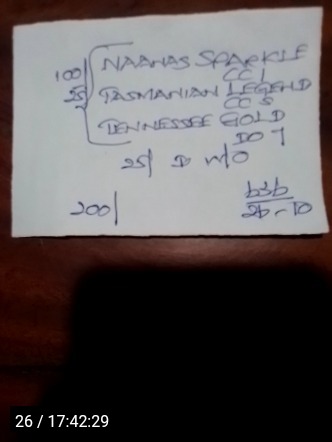 100/ NAANAS SPARKLE
CC 1
25/ TASMANIAN LEGEND
CC 5
TENNESSEE GOLD
DO 7
25/ D w/o
200/
26 / 17:42:29